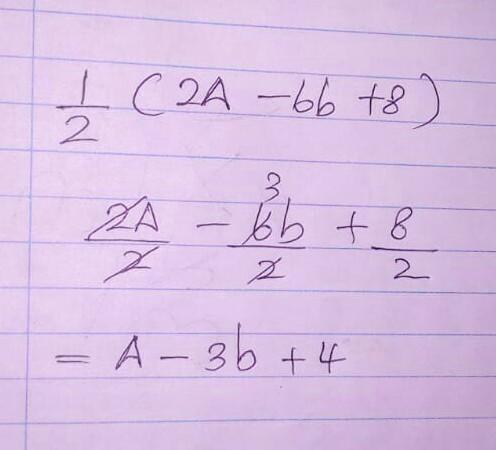 1/2 (2A - 6b + 8)
2A/2 - 6b/2 + 8/2
3
= A - 3b + 4